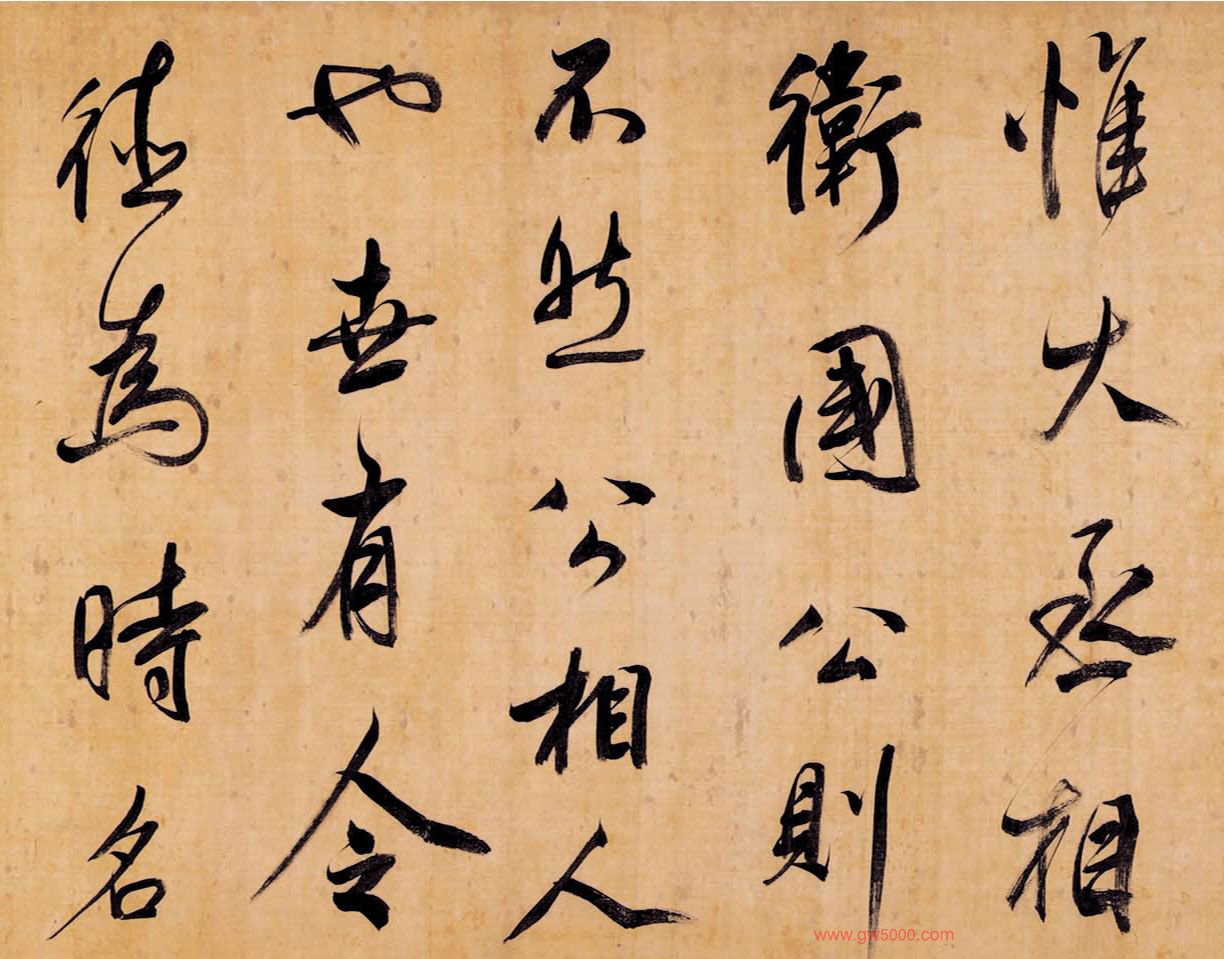 惟大丞相
衛國公則
不然公相人
也世有令
德為時名
www.gw5000.com